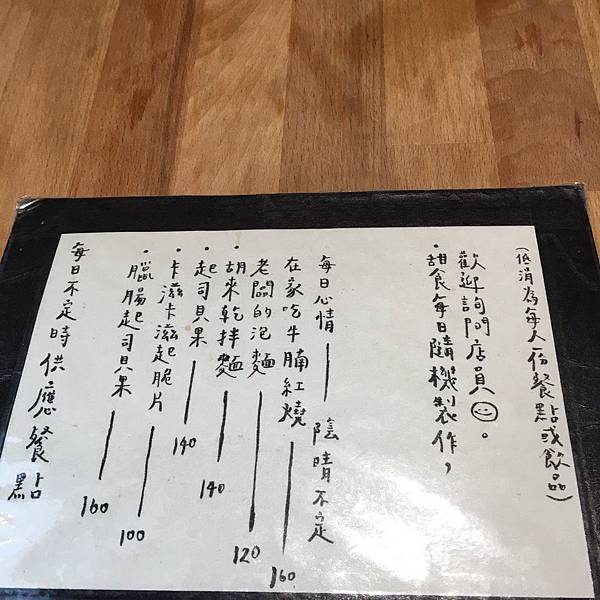 每日不定時供應餐點
・臘腸起司貝果——160
・卡滋卡滋起脆片——100
・起司貝果——140
・胡來乾拌麵——140
老闆的泡麵——120
在家吃牛腩紅燒——160
每日心情——陰晴不定
・甜食每日隨機製作，
歡迎詢問店員☺。
(低消為每人一份餐點或飲品)